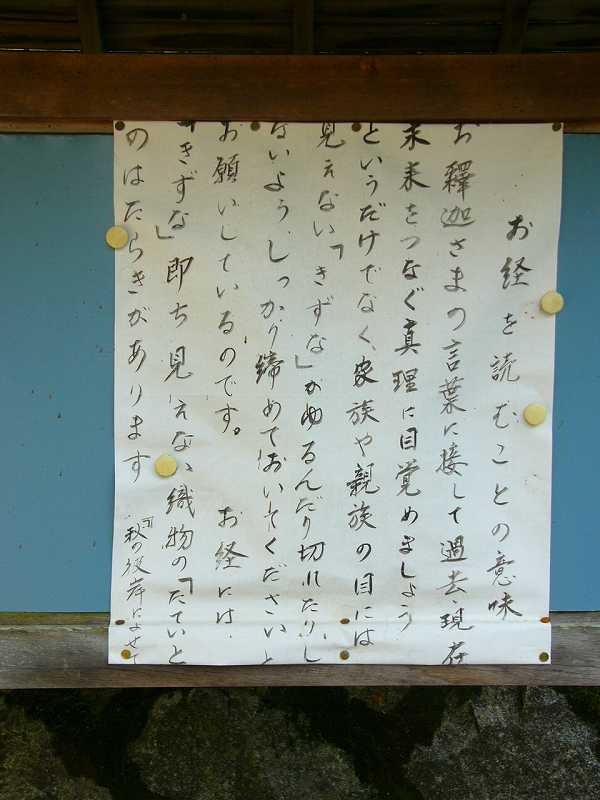 お経を読むことの意味
お釋迦さまの言葉に接して過去・現在
未来をつなぐ真理に目覚めましょう
というだけでなく、家族や親族の目には
見えない「きずな」がゆるんだり切れたりし
ないよう、しっかり締めておいてくださいと
お願いしているのです。 お経には、
「きずな」即ち見えない織物の「たていと
のはたらきがあります
秋の彼岸によせて